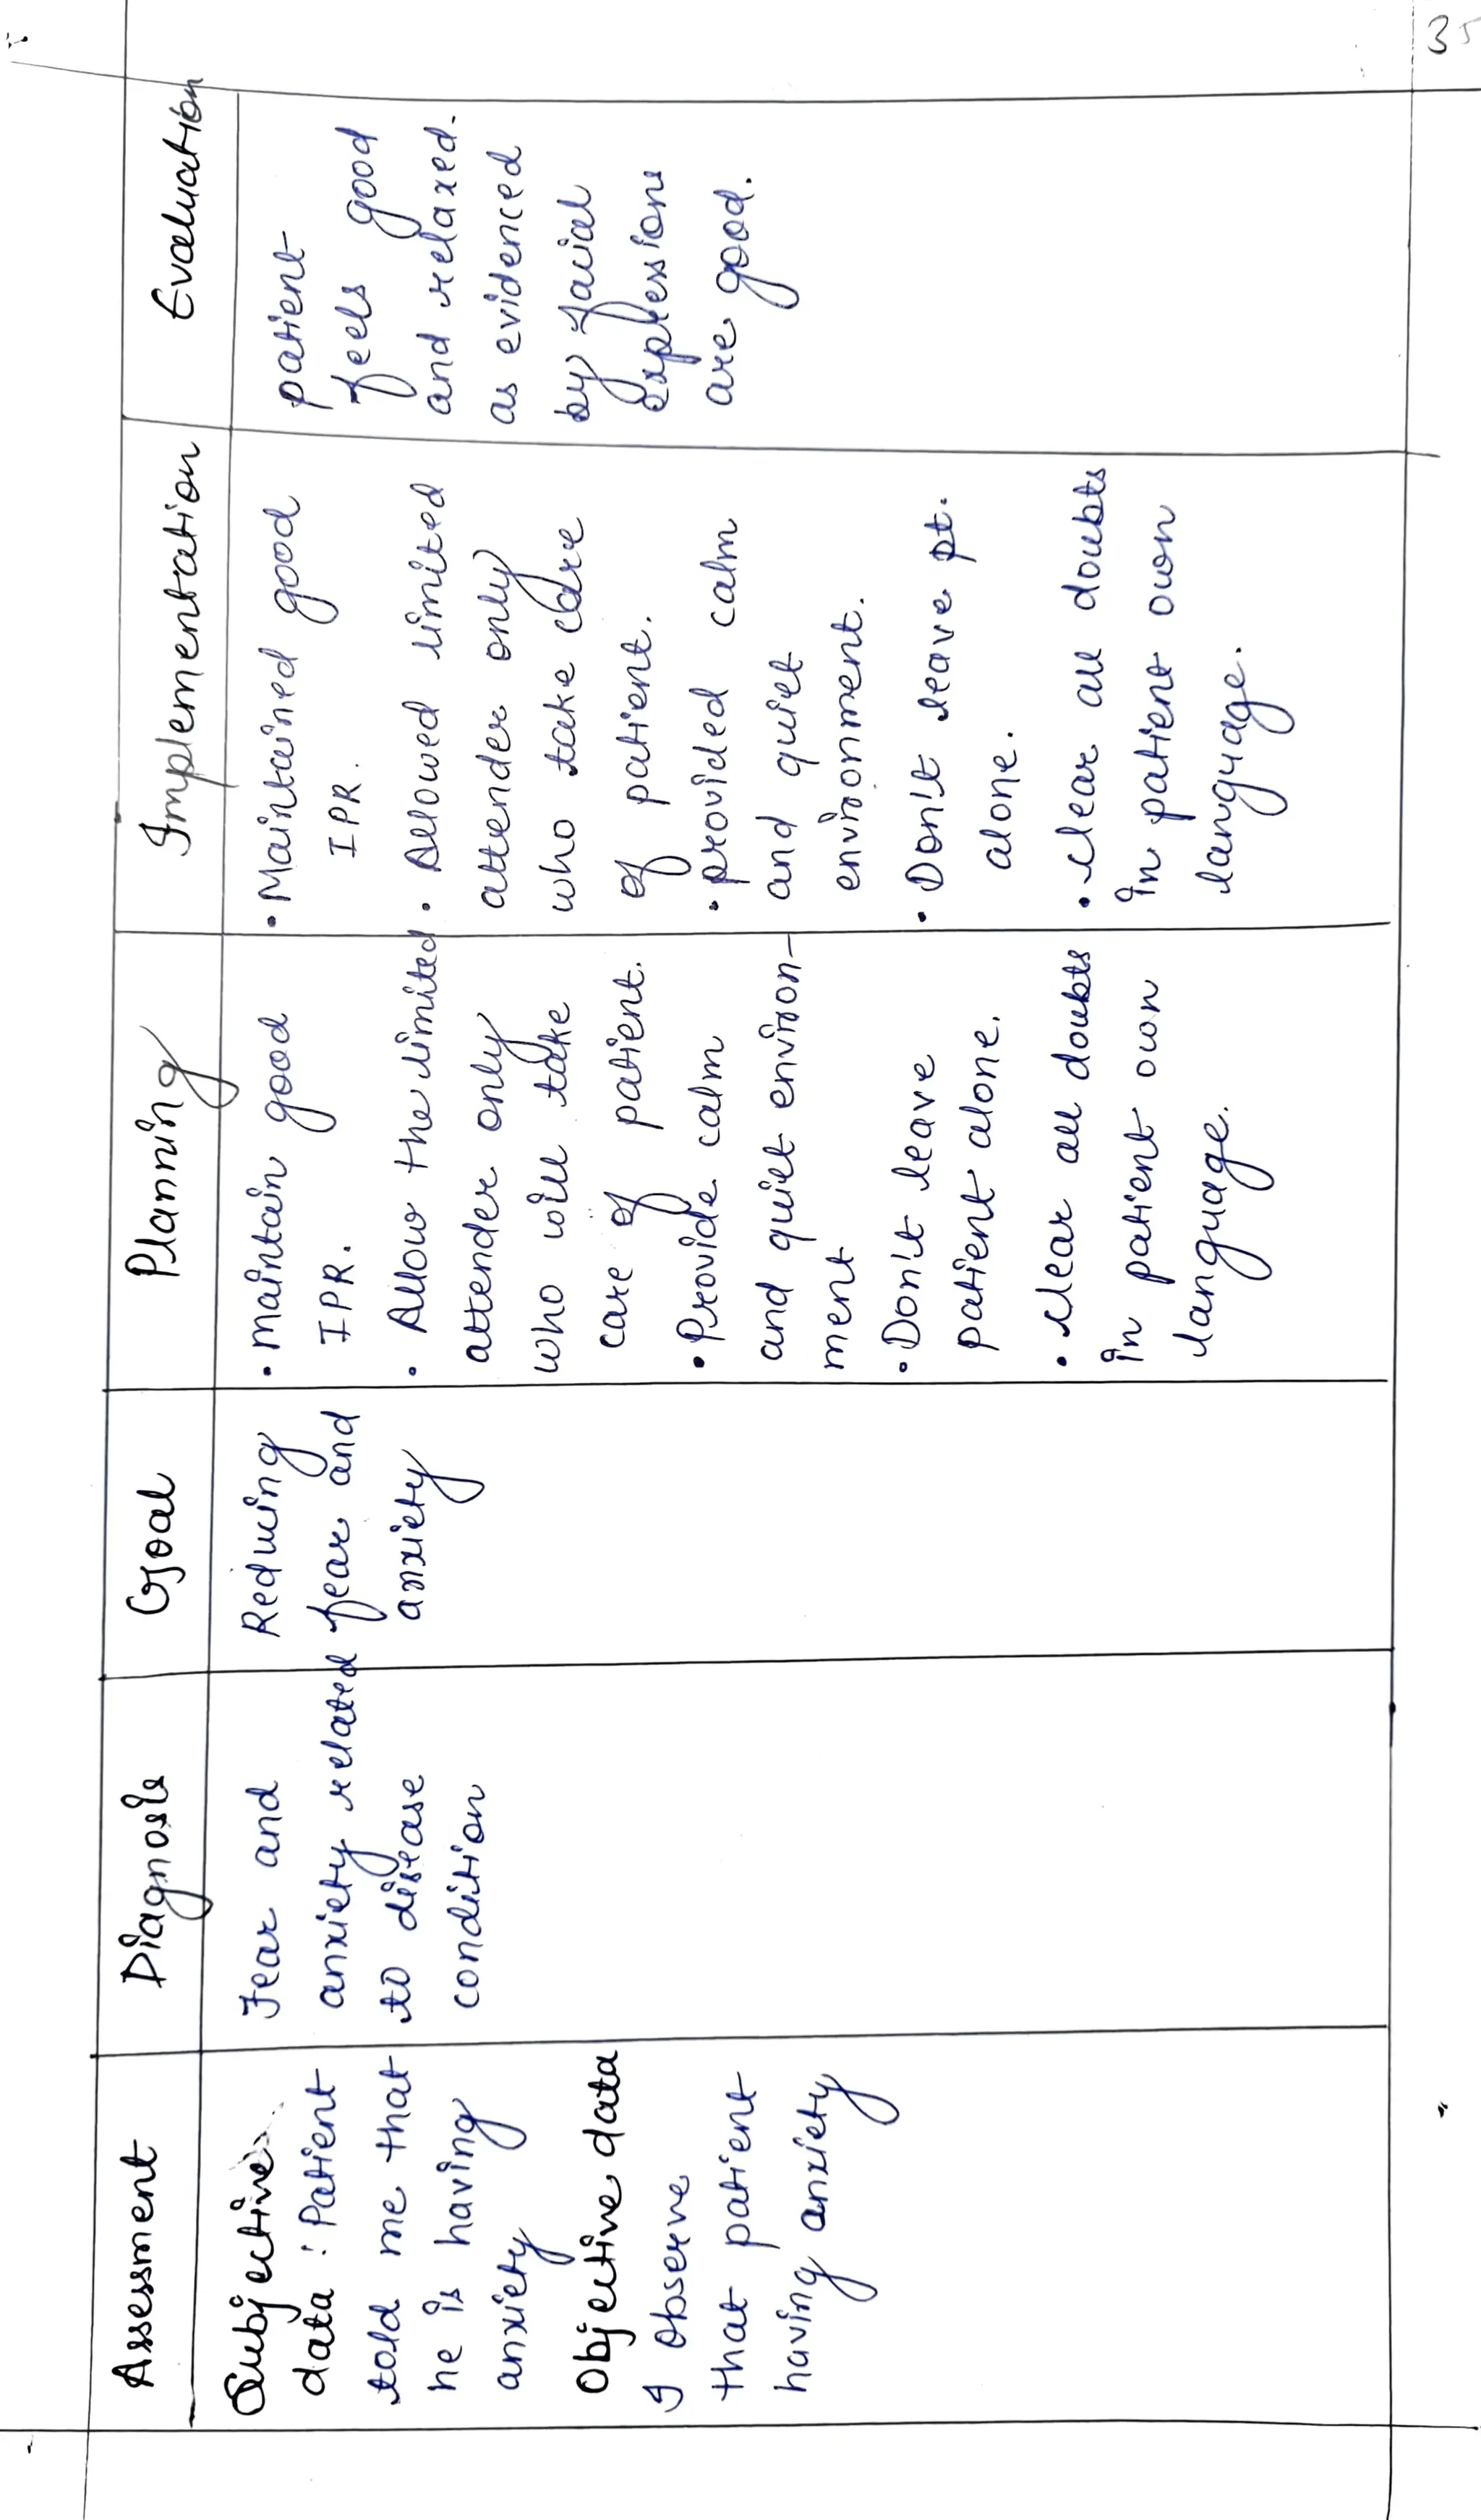 35
Assessment
Diagnosis
Goal
Planning
Implementation
Evaluation
Subjective
data : Patient
told me that
he is having
anxiety
Objective data
I observe
that patient
having anxiety
Fear and
anxiety related
to disease
condition
Reducing
fear and
anxiety
• Maintain good
IPR.
• Allow the limited
attender only
who will take
care of patient.
• Provide calm
and quiet environ-
ment
• Don't leave
patient alone.
• clear all doubts
in patient own
language.
• Maintained good
IPR.
• Allowed limited
attender only
who take care
of patient.
• provided calm
and quiet
environment.
• Don't leave pt.
alone.
• clear all doubts
in patient own
language.
patient
feels good
and relaxed.
as evidenced
by facial
expressions
are good.